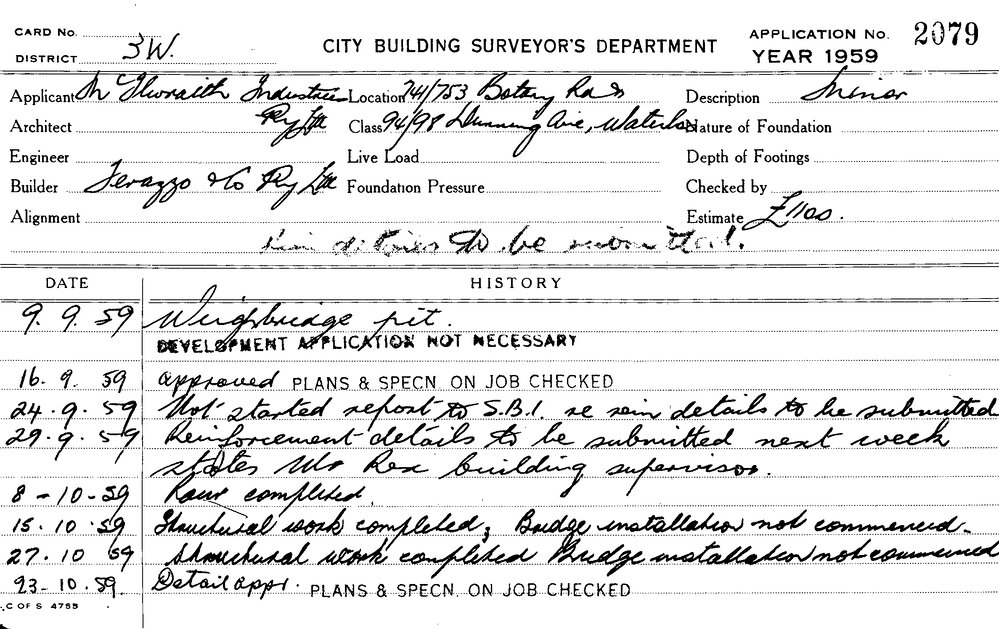 CARD No.
DISTRICT 3W.
CITY BUILDING SURVEYOR'S DEPARTMENT
APPLICATION No. 2079
YEAR 1959
Applicant McIlwraith Industries Location 741/753 Botany Rd Description Minor
Architect Pty Ltd Class 94/98 Dunning Ave, Waterloo Nature of Foundation
Engineer Live Load Depth of Footings
Builder Terazzo & Co Pty Ltd Foundation Pressure Checked by
Alignment Estimate £1100.
Rein details to be submitted.
DATE HISTORY
9. 9. 59 Weighbridge pit.
DEVELOPMENT APPLICATION NOT NECESSARY
16. 9. 59 approved PLANS & SPECN. ON JOB CHECKED
24. 9. 59 Not started report to S.B.I. re rein details to be submitted
29. 9. 59 Reinforcement details to be submitted next week
states Mr Rex building supervisor.
8-10-59 completed.
15. 10. 59 Structural work completed; Bridge installation not commenced.
27. 10 59 Structural work completed Bridge installation not commenced
23-10. 59. Detail appr. PLANS & SPECN. ON JOB CHECKED
C OF S 4755